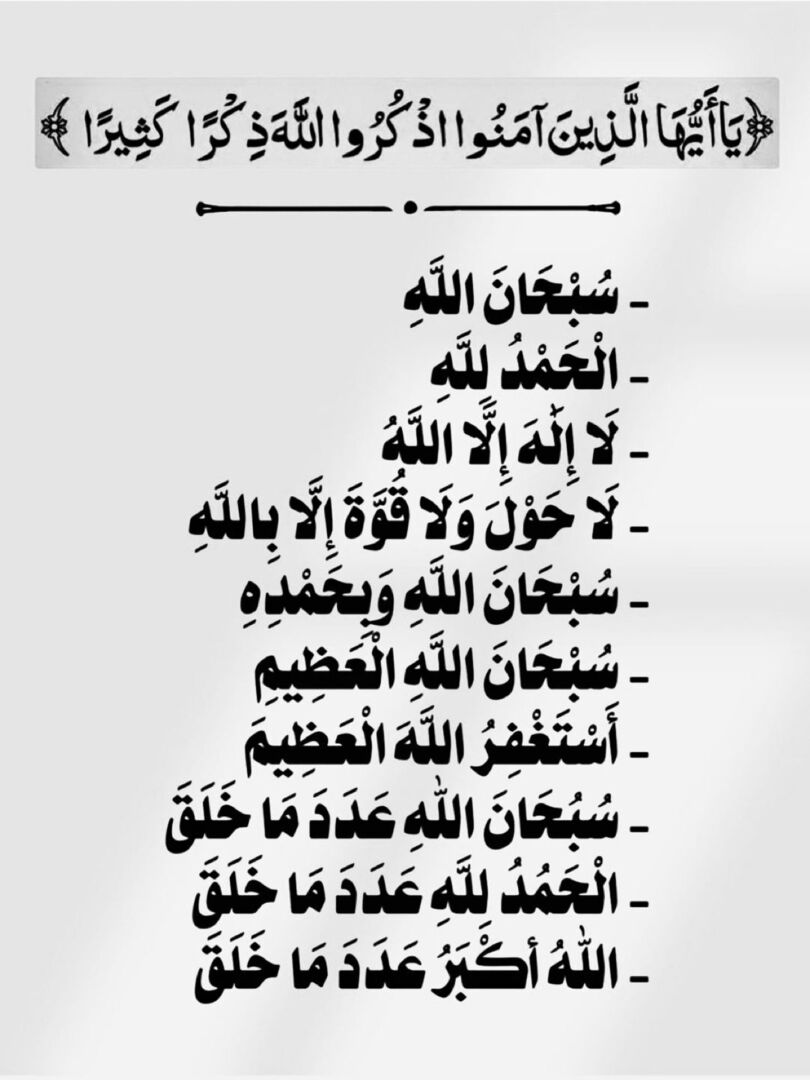 ﴿يَا أَيُّهَا الَّذِينَ آمَنُوا اذْكُرُوا اللَّهَ ذِكْرًا كَثِيرًا﴾
- سُبْحَانَ اللَّهِ
- الْحَمْدُ للَّهِ
- لَا إِلَٰهَ إِلَّا اللَّهُ
- لَا حَوْلَ وَلَا قُوَّةَ إِلَّا بِاللَّهِ
- سُبْحَانَ اللَّهِ وَبِحَمْدِهِ
- سُبْحَانَ اللَّهِ الْعَظِيمِ
- أَسْتَغْفِرُ اللَّهَ الْعَظِيمَ
- سُبُحَانَ اللهِ عَدَدَ مَا خَلَقَ
- الْحَمُدُ للَّهِ عَدَدَ مَا خَلَقَ
- اللهُ أكْبَرُ عَدَدَ مَا خَلَقَ